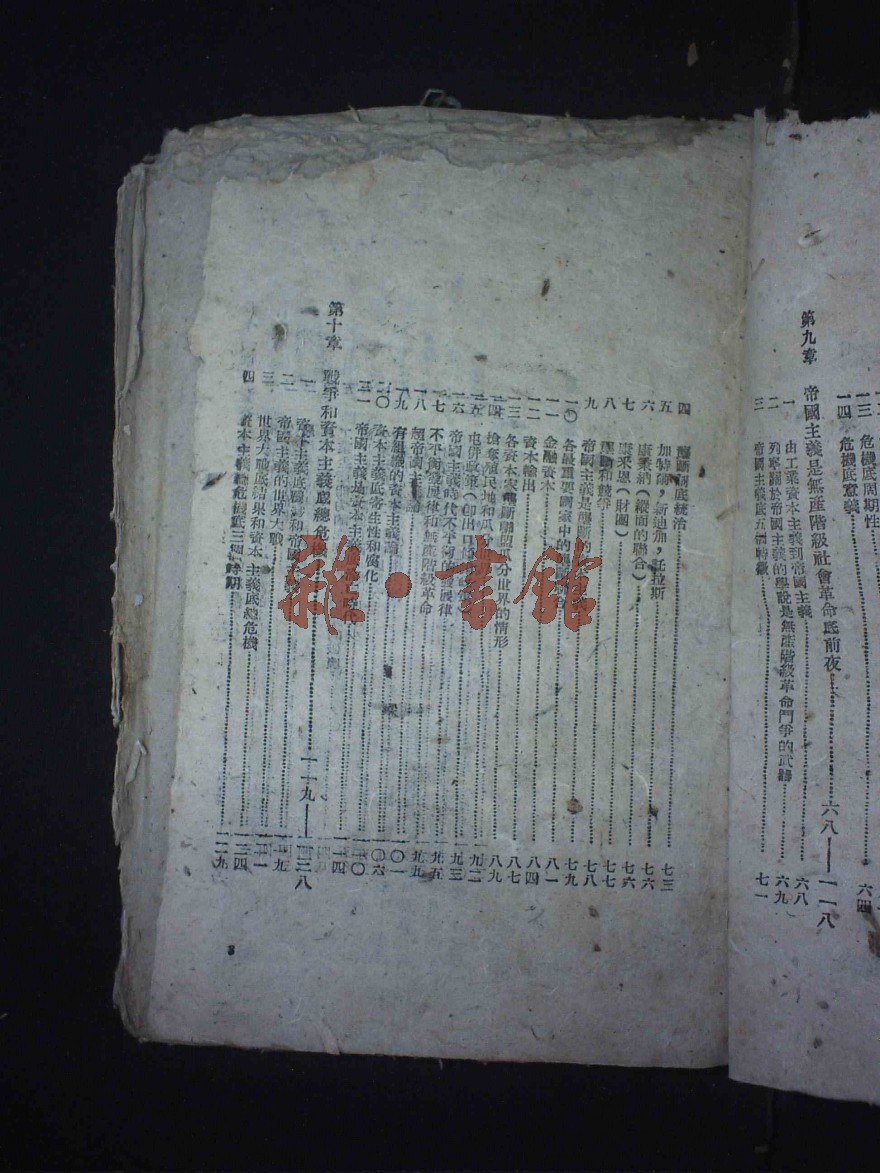 一三 危機底周期性
一四 危機底意義 六四
第九章 帝國主義是無產階級社會革命底前夜 六八——一一八
一 由工業資本主義到帝國主義 六八
二 列寧關於帝國主義的學說是無產階級革命鬥爭的武器 六九
三 帝國主義底五個特徵 七一
四 壟斷制底統治 七三
五 加特爾，新迪加，託拉斯 七六
六 康秉納（縱面的聯合） 七六
七 康采恩（財團） 七七
八 壟斷和競爭 七八
九 帝國主義是壟斷的 七九
一〇 各最重要國家中的 八一
一一 金融資本 八四
一二 資本輸出 八七
一三 各資本家壟斷聯盟瓜分世界的情形 八九
一四 搶奪殖民地和瓜分 九二
一五 屯併政策（卽出口 九三
一六 帝國主義時代不平衡的發展律 九五
一七 不平衡發展律和無產階級革命 九五
一八 超帝國主義論
一九 有組織的資本主義論 一〇一
二〇 資本主義底寄生性和腐化 一〇六
二一 帝國主義是資本主義
第十章 戰爭和資本主義底總危機 一一九——一三八
一 資本主義底 和帝國
二 帝國主義的世界大戰
三 世界大戰底結果和資本主義底總危機
四 資本主義總危機底三個時期
3
雜·書館